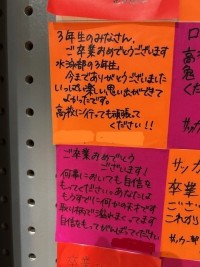 3年生のみなさん、
ご卒業おめでとうございます
水泳部の3年生。
今までありがとうございました
いっぱい楽しい思い出ができて
よかったです。
高校に行っても頑張って
ください!!
ご卒業おめでとう
ございます!
何事においても自信を
もってください。あなたは
もうすでに何かの天才です
自信をもってがんばってください
ロ
あ
危
く
サッカ
卒業
ござ
これから
サッカー部